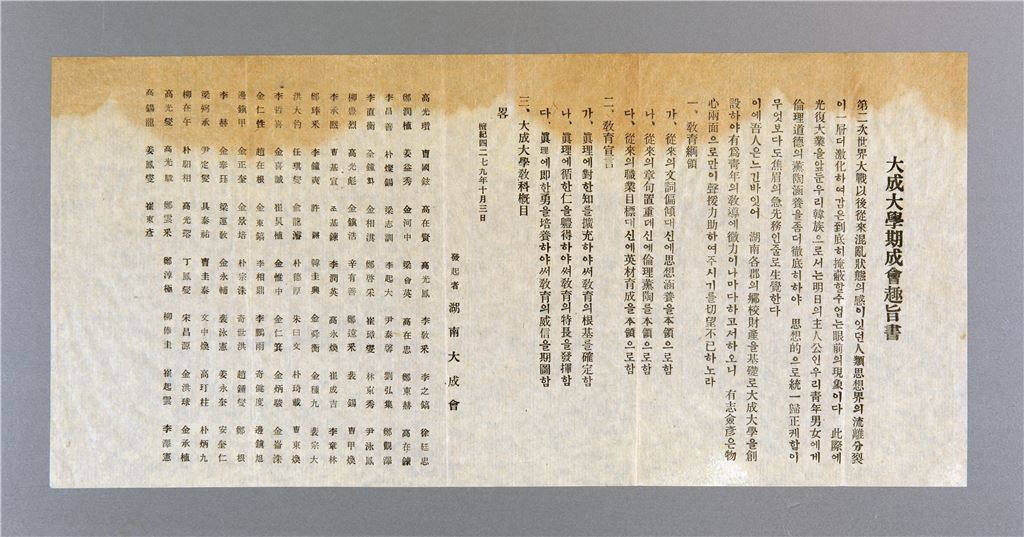 大成大學期成會趣旨書
第二次世界大戰以後從來混亂狀態의感이잇던人類思想界의流離分裂
이一層더激化하여감은到底히掩蔽할수업는眼前의現象이다 此際에
光復大業을앞둔우리韓族으로서는明日의主人公인우리靑年男女에게
倫理道德의薰陶涵養을좀더徹底히하야 思想的으로統一歸正케함이
무엇보다도焦眉의急先務인줄로生覺한다
이에吾人은느긴바잇어 湖南各郡의鄕校財產을基礎로大成大學을創
設하야有爲靑年의敎導에微力이나마다하고저하오니 有志僉彦은物
心兩面으로만이聲援力助하여주시기를切望不已하노라
一、敎育綱領
가、從來의文詞偏傾대신에思想涵養을本領으로함
나、從來의章句置重대신에倫理薰陶를本領으로함
다、從來의職業目標대신에英材育成을本領으로함
二、敎育宣言
가、眞理에對한知를擴充하야써敎育의根基를確定함
나、眞理에循한仁을體得하야써敎育의特長을發揮함
다、眞理에即한勇을培養하야써敎育의威信을期圖함
三、大成大學敎科槪目
畧
檀紀四二七九年十月三日
發起者 湖南大成會
高光瓚 曹國鉉 高在賢 高光鳳 李敎釆 李之鎬 徐廷忠
鄭潤植 姜益秀 金河中 梁會英 高在忠 鄭東赫 高在鍊
李昌善 朴燦錫 梁志訓 李起大 尹泰馨 劉弘集 鄭觀澤
李直衡 金相淇 鄭啓采 崔璋燮 林東秀 尹泳鳳
柳豊烈 高光彪 金鎭浩 辛有善 鄭遠采 裴錫 曹甲煥
李承熙 曹基宣 李潤英 高永煥 崔成吉 李章林
鄭琫采 李鍾奭 許 韓圭興 金舜衡 金種九 裴宗大
洪大鈞 任琪燮 朴德厚 朱曰文 朴琦載 曹東煥
李 喜 金喜誠 崔昃植 金惟中 金仁箕 金炳駿 金崙洙
金仁性 趙在根 金東鎬 李相鼎 李鵬雨 奇健度 邊鎭旭
邊鎭甲 金正奎 金景培 朴宗洙 奇世洪 趙鍾燮 鄭 根
李赫 金奉珏 梁運敎 金永輔 裴泳憲 姜永奎 安奎仁
梁炳承 尹定燮 具泰祐 曹圭泰 文中煥 高玎柱 朴炳九
柳在午 朴順相 高光 丁鳳燮 宋昌源 金洪球 金承植
高光燮 高光駿 鄭雲釆 鄭淳極 柳佛圭 崔起雲 李澤憲
高錫龍 姜鳳燮 崔東彥